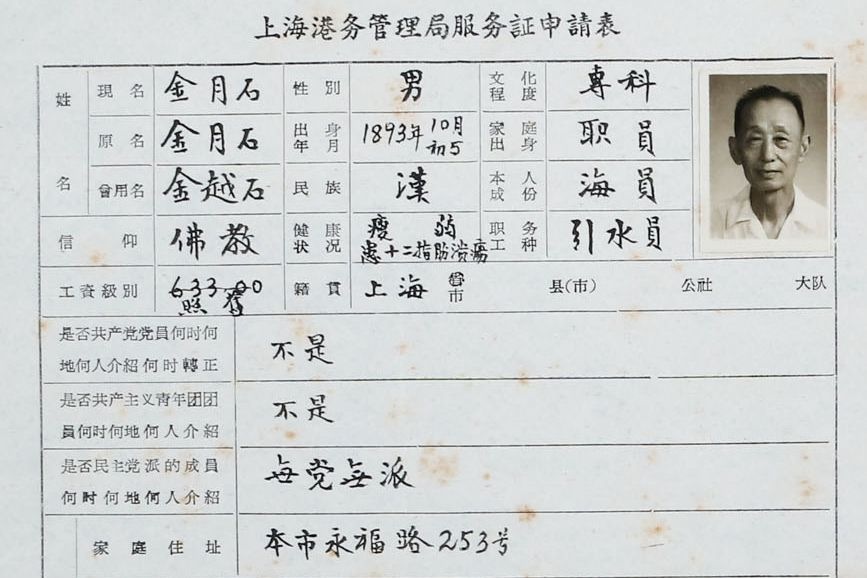 上海港务管理局服务証申請表
姓名 現名 金月石 性别 男 文化程度 專科
原名 金月石 出身年月 1893年10月初5 家庭出身 职員
曾用名 金越石 民族 漢 本人成份 海員
信仰 佛教 健康状况 瘦弱 患十二指肠溃瘍 职务工种 引水員
工資級別 633.00 照舊 籍貫 上海 省市 县(市) 公社 大队
是否共产党党員何时何
地何人介紹何时轉正 不是
是否共产主义青年团团
員何时何地何人介紹 不是
是否民主党派的成員
何时何地何人介紹 毎党無派
家庭住址 本市永福路253号